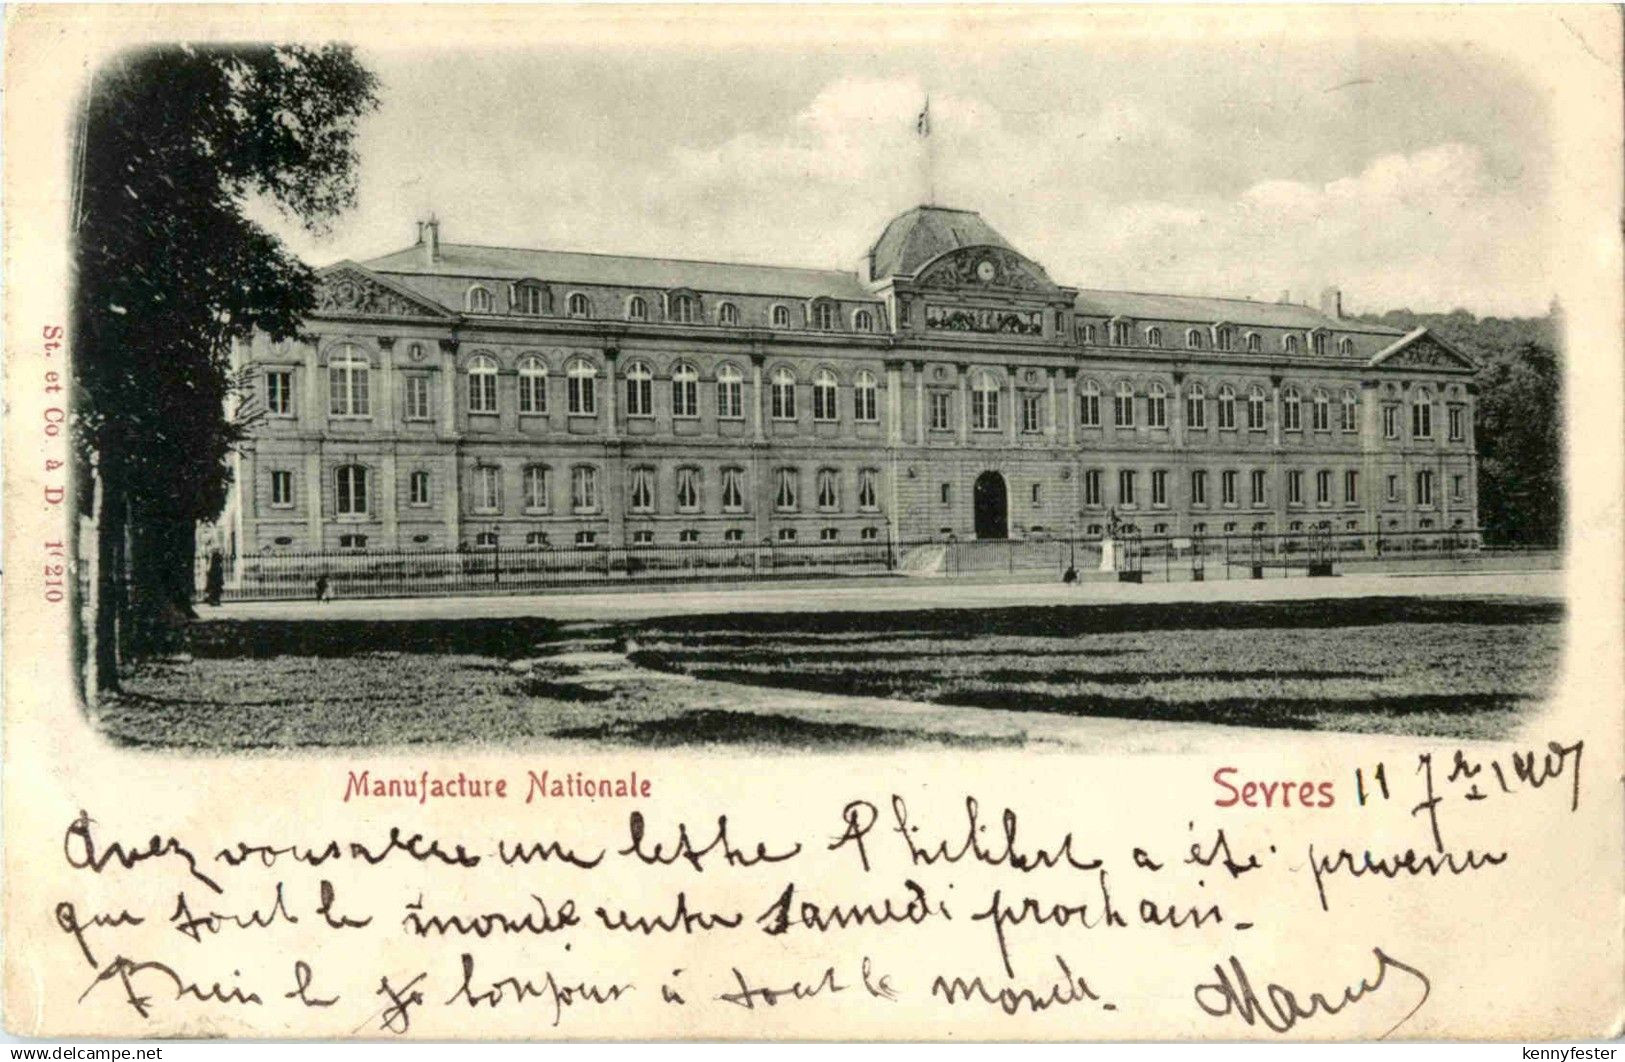 St. et Co. à D. 10210
Manufacture Nationale
Sevres 11 7re
Avez vous une lettre Philibert a été prevenu
que tout le monde rentre samedi prochain -
Bien le bonjour à tout le monde. Marcel
kennyfester